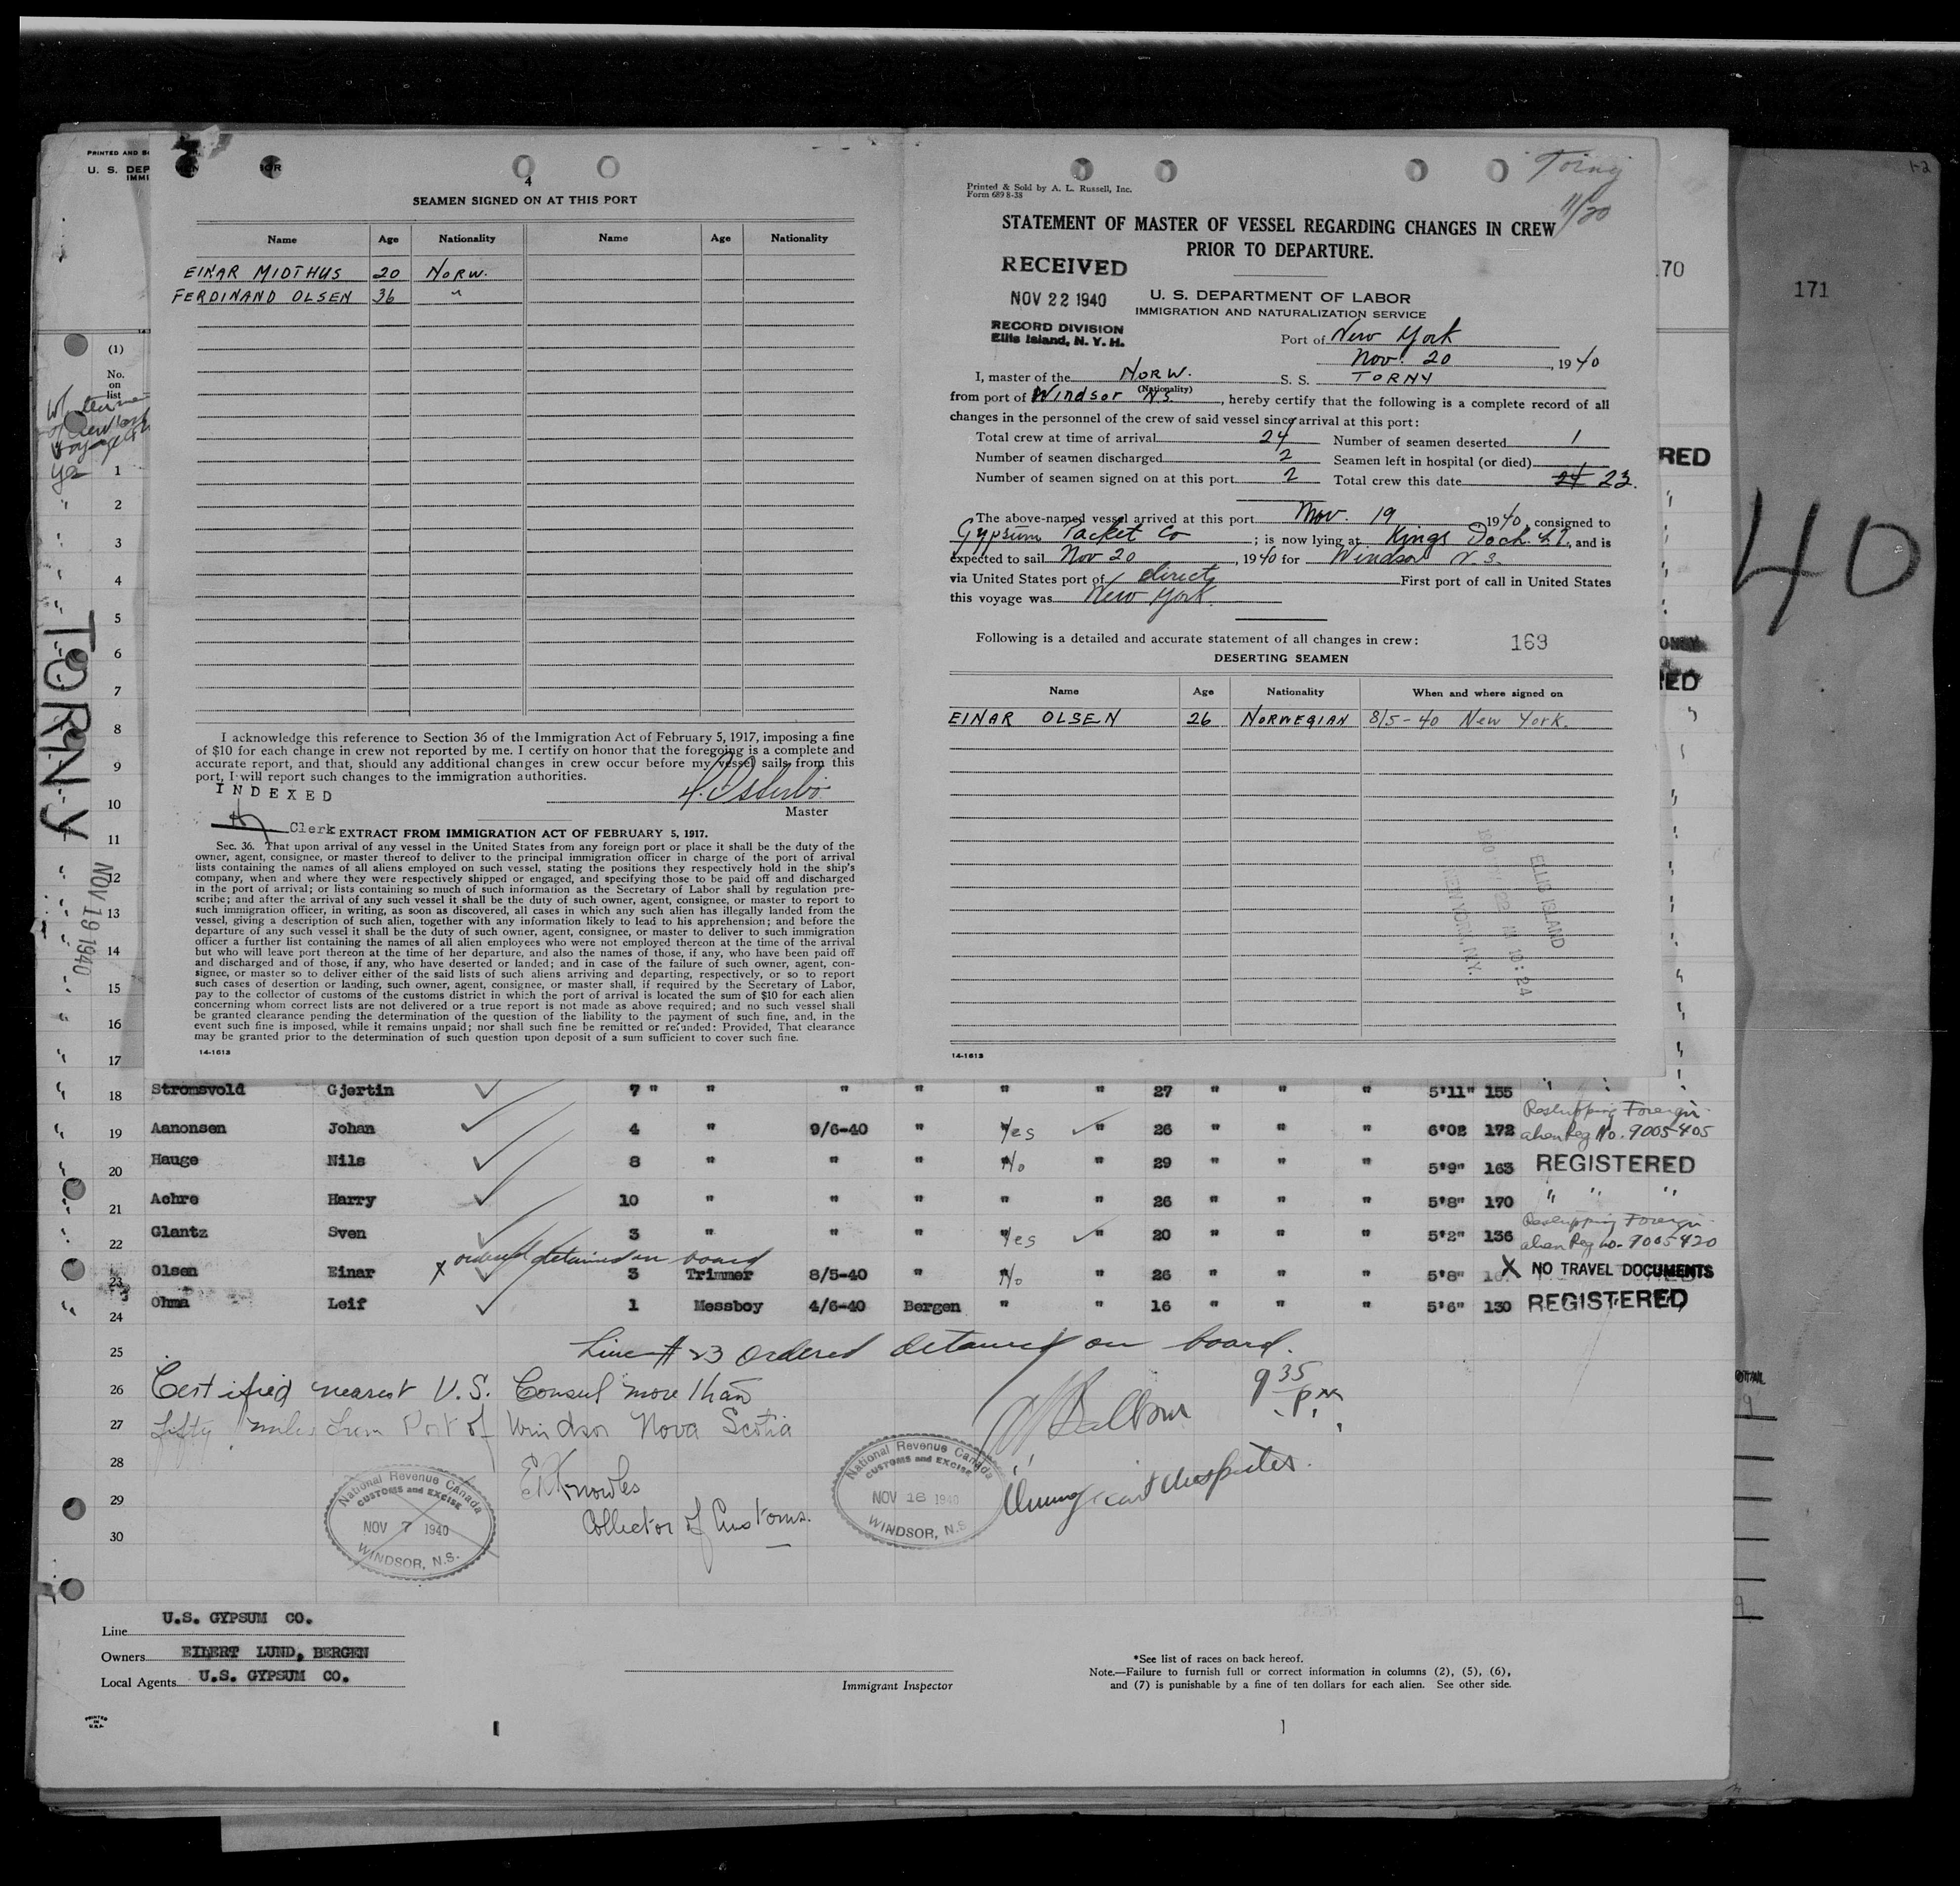 PRINTED AND
U. S. DEP
IMMI
4
SEAMEN SIGNED ON AT THIS PORT
Name Age Nationality Name Age Nationality
EINAR MIDTHUS 20 NORW.
FERDINAND OLSEN 36 "
I acknowledge this reference to Section 36 of the Immigration Act of February 5, 1917, imposing a fine
of $10 for each change in crew not reported by me. I certify on honor that the foregoing is a complete and
accurate report, and that, should any additional changes in crew occur before my vessel sails from this
port, I will report such changes to the immigration authorities.
INDEXED
Master
Clerk
EXTRACT FROM IMMIGRATION ACT OF FEBRUARY 5, 1917.
Sec. 36. That upon arrival of any vessel in the United States from any foreign port or place it shall be the duty of the
owner, agent, consignee, or master thereof to deliver to the principal immigration officer in charge of the port of arrival
lists containing the names of all aliens employed on such vessel, stating the positions they respectively hold in the ship's
company, when and where they were respectively shipped or engaged, and specifying those to be paid off and discharged
in the port of arrival; or lists containing so much of such information as the Secretary of Labor shall by regulation pre-
scribe; and after the arrival of any such vessel it shall be the duty of such owner, agent, consignee, or master to report to
such immigration officer, in writing, as soon as discovered, all cases in which any such alien has illegally landed from the
vessel, giving a description of such alien, together with any information likely to lead to his apprehension; and before the
departure of any such vessel it shall be the duty of such owner, agent, consignee, or master to deliver to such immigration
officer a further list containing the names of all alien employees who were not employed thereon at the time of the arrival
but who will leave port thereon at the time of her departure, and also the names of those, if any, who have been paid off
and discharged and of those, if any, who have deserted or landed; and in case of the failure of such owner, agent, con-
signee, or master so to deliver either of the said lists of such aliens arriving and departing, respectively, or so to report
such cases of desertion or landing, such owner, agent, consignee, or master shall, if required by the Secretary of Labor,
pay to the collector of customs of the customs district in which the port of arrival is located the sum of $10 for each alien
concerning whom correct lists are not delivered or a true report is not made as above required; and no such vessel shall
be granted clearance pending the determination of the question of the liability to the payment of such fine, and, in the
event such fine is imposed, while it remains unpaid; nor shall such fine be remitted or refunded: Provided, That clearance
may be granted prior to the determination of such question upon deposit of a sum sufficient to cover such fine.
14-1613
Torny
11/20
Printed & Sold by A. L. Russell, Inc.
Form 689 8-38
STATEMENT OF MASTER OF VESSEL REGARDING CHANGES IN CREW
PRIOR TO DEPARTURE.
RECEIVED
NOV 22 1940
RECORD DIVISION
Ellis Island, N. Y. H.
U. S. DEPARTMENT OF LABOR
IMMIGRATION AND NATURALIZATION SERVICE
Port of New York
Nov. 20, 1940
I, master of the NORW. S. S. TORNY
(Nationality)
from port of Windsor N.S., hereby certify that the following is a complete record of all
changes in the personnel of the crew of said vessel since arrival at this port:
Total crew at time of arrival 24 Number of seamen deserted 1
Number of seamen discharged 2 Seamen left in hospital (or died)
Number of seamen signed on at this port 2 Total crew this date 24 23.
The above-named vessel arrived at this port Nov. 19 1940, consigned to
Gypsum Packet Co; is now lying at Kings Dock, and is
expected to sail Nov 20, 1940 for Windsor N.S.
via United States port of direct First port of call in United States
this voyage was New York.
Following is a detailed and accurate statement of all changes in crew: 169
DESERTING SEAMEN
Name Age Nationality When and where signed on
EINAR OLSEN 26 NORWEGIAN 8/5-40 New York.
ELLIS ISLAND
NEW YORK, N.Y.
14-1613
70
171
40
RED
TORNY
NOV 19 1940
(1)
No.
on
list
1
2
3
4
5
6
7
8
9
10
11
12
13
14
15
16
17
18 Stromsvold Gjertin 7 " " " " " " 27 " " " 5'11" 155 " "
19 Aanonsen Johan 4 " 9/6-40 " Yes " 26 " " " 6'02 172 Reshipping Foreign alien Reg No. 9005405
20 Hauge Nils 8 " " " No " 29 " " " 5'9" 163 REGISTERED
21 Achre Harry 10 " " " " " 26 " " " 5'8" 170 " " "
22 Glantz Sven 3 " " " Yes " 20 " " " 5'2" 136 Reshipping Foreign alien Reg no. 9005420
x ordered detained on board
23 Olsen Einar 3 Trimmer 8/5-40 " No " 26 " " " 5'8" X NO TRAVEL DOCUMENTS
24 Ohma Leif 1 Messboy 4/6-40 Bergen " " 16 " " " 5'6" 130 REGISTERED
25 Line # 23 Ordered detained on board.
26 Certified nearest U.S. Consul more than
27 fifty miles from Port of Windsor Nova Scotia
28
29
30
9 35 p.m.
E Knowles
Collector of Customs.
National Revenue Canada
CUSTOMS and EXCISE
NOV 7 1940
WINDSOR, N.S.
National Revenue Canada
CUSTOMS and EXCISE
NOV 16 1940
WINDSOR, N.S.
Line U.S. GYPSUM CO.
Owners EILERT LUND, BERGEN
Local Agents U.S. GYPSUM CO.
Immigrant Inspector
*See list of races on back hereof.
Note.—Failure to furnish full or correct information in columns (2), (5), (6),
and (7) is punishable by a fine of ten dollars for each alien. See other side.
PRINTED
IN
U.S.A.